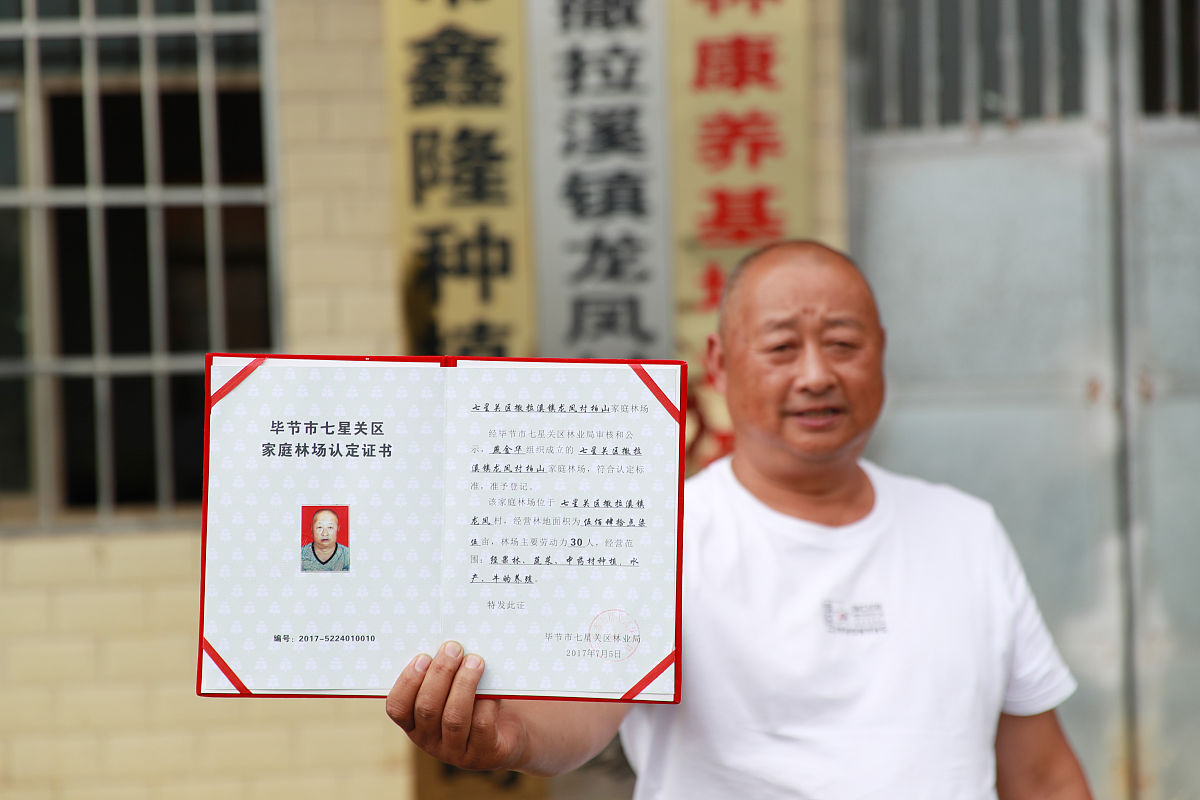 鑫隆种植
撒拉溪镇龙凤
林康养基地
毕节市七星关区
家庭林场认定证书
编号：2017-5224010010
七星关区撒拉溪镇龙凤村柏山家庭林场
经毕节市七星关区林业局审核和公
示，燕金华组织成立的 七星关区撒拉
溪镇龙凤村柏山家庭林场，符合认定标
准，准予登记。
该家庭林场位于 七星关区撒拉溪镇
龙凤村，经营林地面积为伍佰肆拾点柒
伍亩，林场主要劳动力30人，经营范
围：经果林、蔬菜、中药材种植，水
产、牛的养殖。
特发此证
毕节市七星关区林业局
2017年7月5日